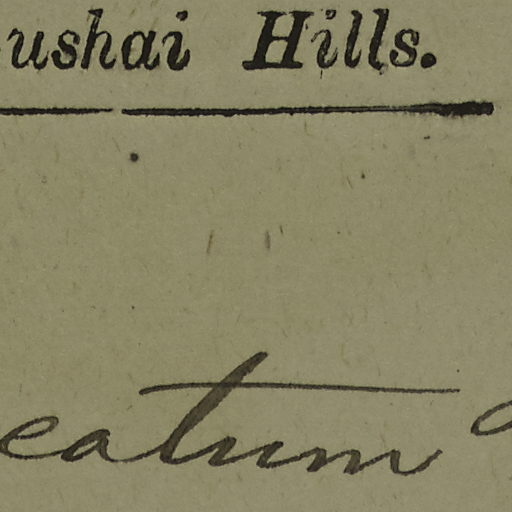 ushai Hills.
eatum